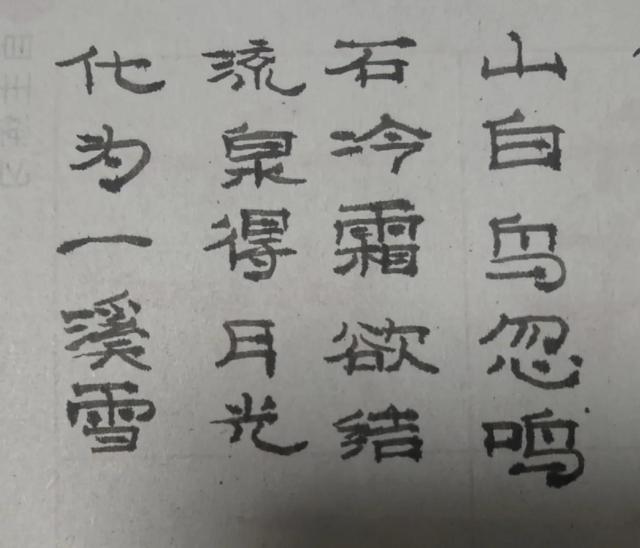 山白鸟忽鸣
石冷霜欲结
流泉得月光
化为一溪雪